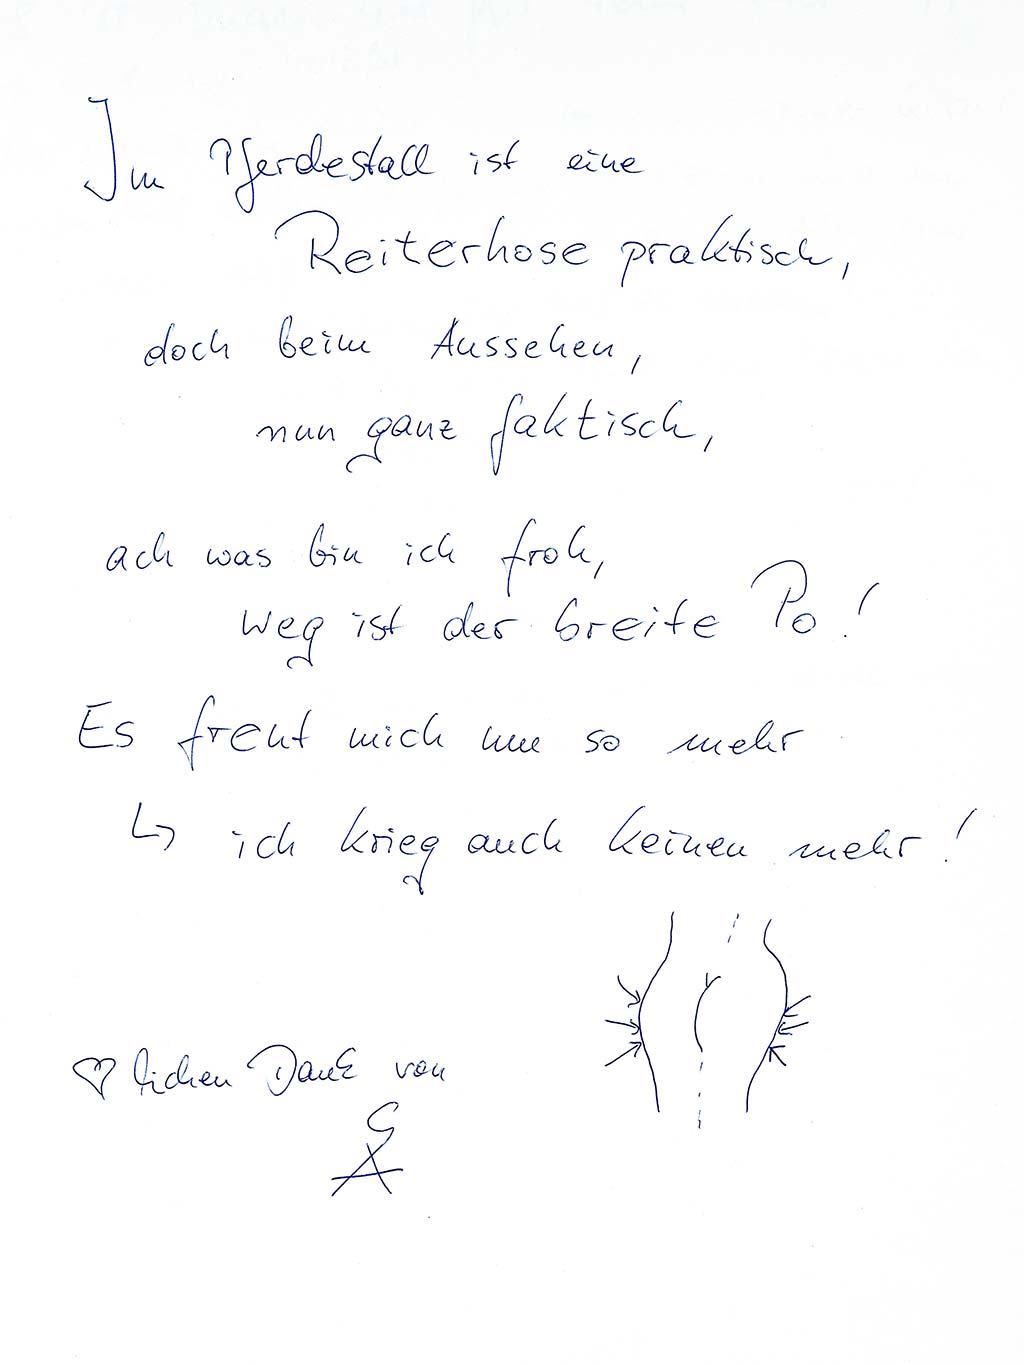 Im Pferdestall ist eine
Reiterhose praktisch,
doch beim Aussehen,
nun ganz faktisch,
ach was bin ich froh,
weg ist der breite Po!
Es freut mich um so mehr
↳ ich krieg auch keinen mehr!
♡lichen Dank von